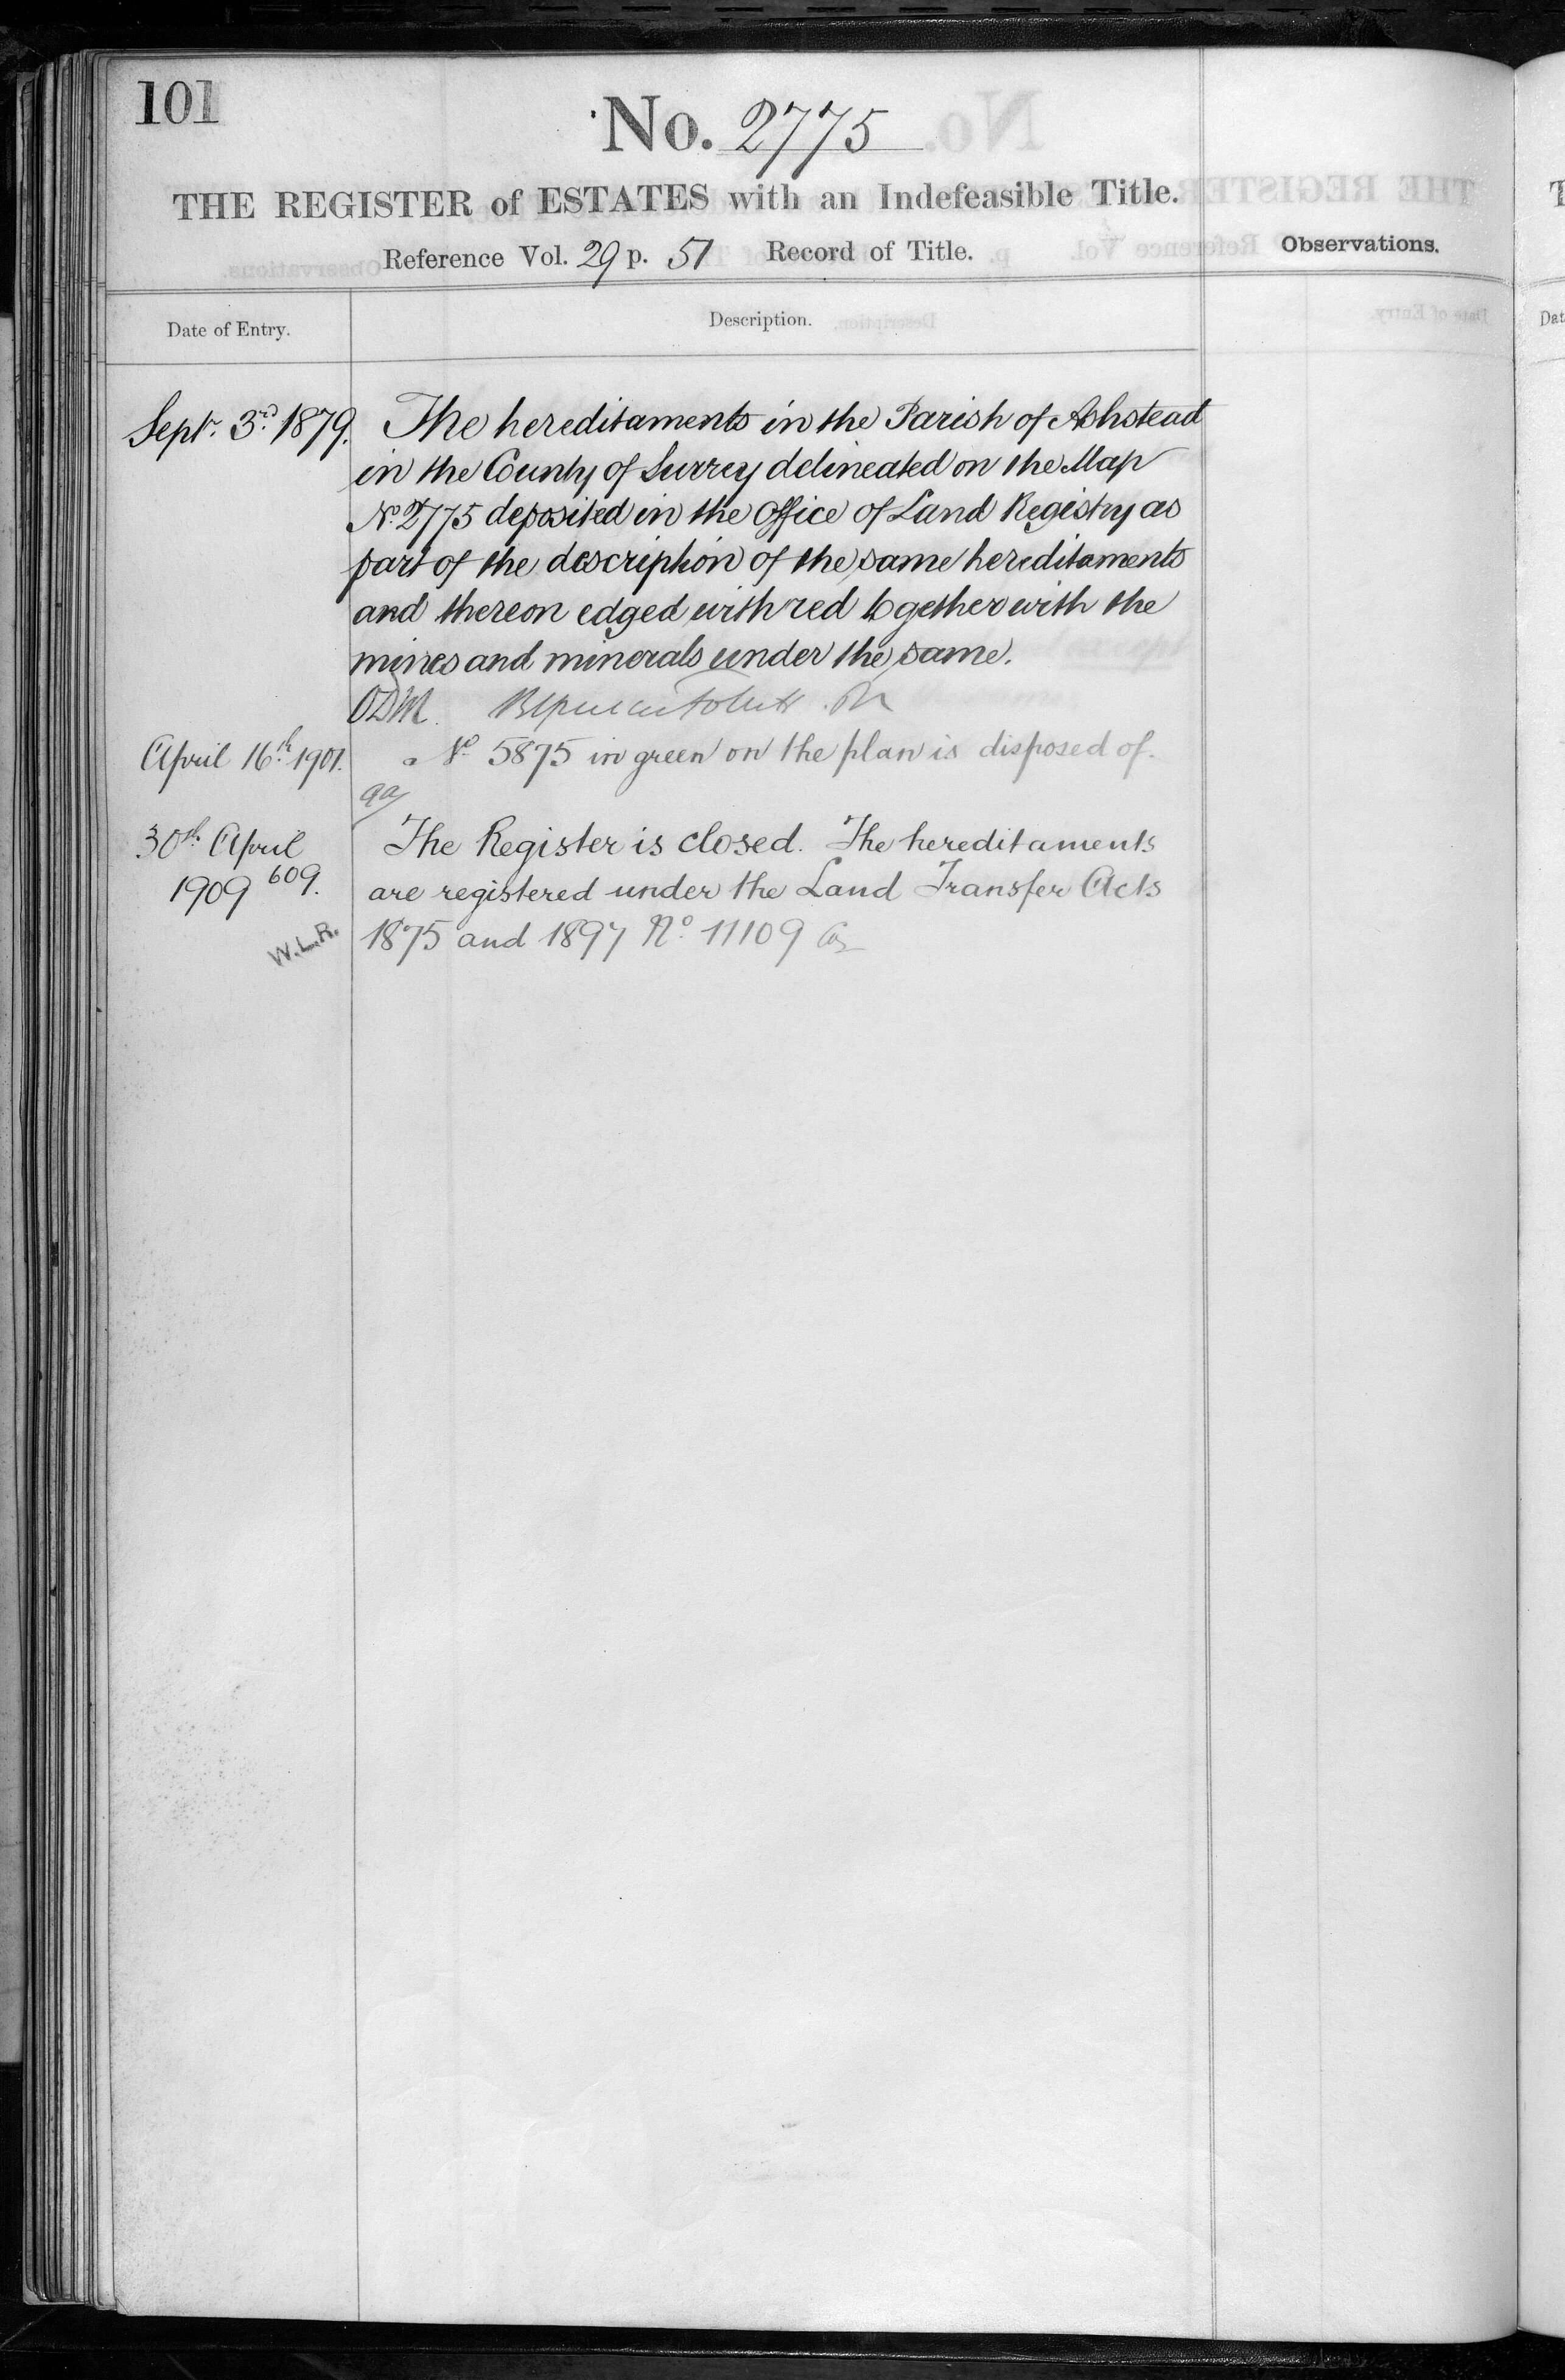 101
No. 2775
THE REGISTER of ESTATES with an Indefeasible Title.
Reference Vol. 29 p. 51 Record of Title.
Observations.
Date of Entry.
Description.
Sept. 3rd 1879.
The hereditaments in the Parish of Ashstead
in the County of Surrey delineated on the Map
No. 2775 deposited in the Office of Land Registry as
part of the description of the same hereditaments
and thereon edged with red together with the
mines and minerals under the same.
ODM.
April 16th 1901.
No 5875 in green on the plan is disposed of.
30th April
1909 609.
W.L.R.
The Register is closed. The hereditaments
are registered under the Land Transfer Acts
1875 and 1897 No 11109